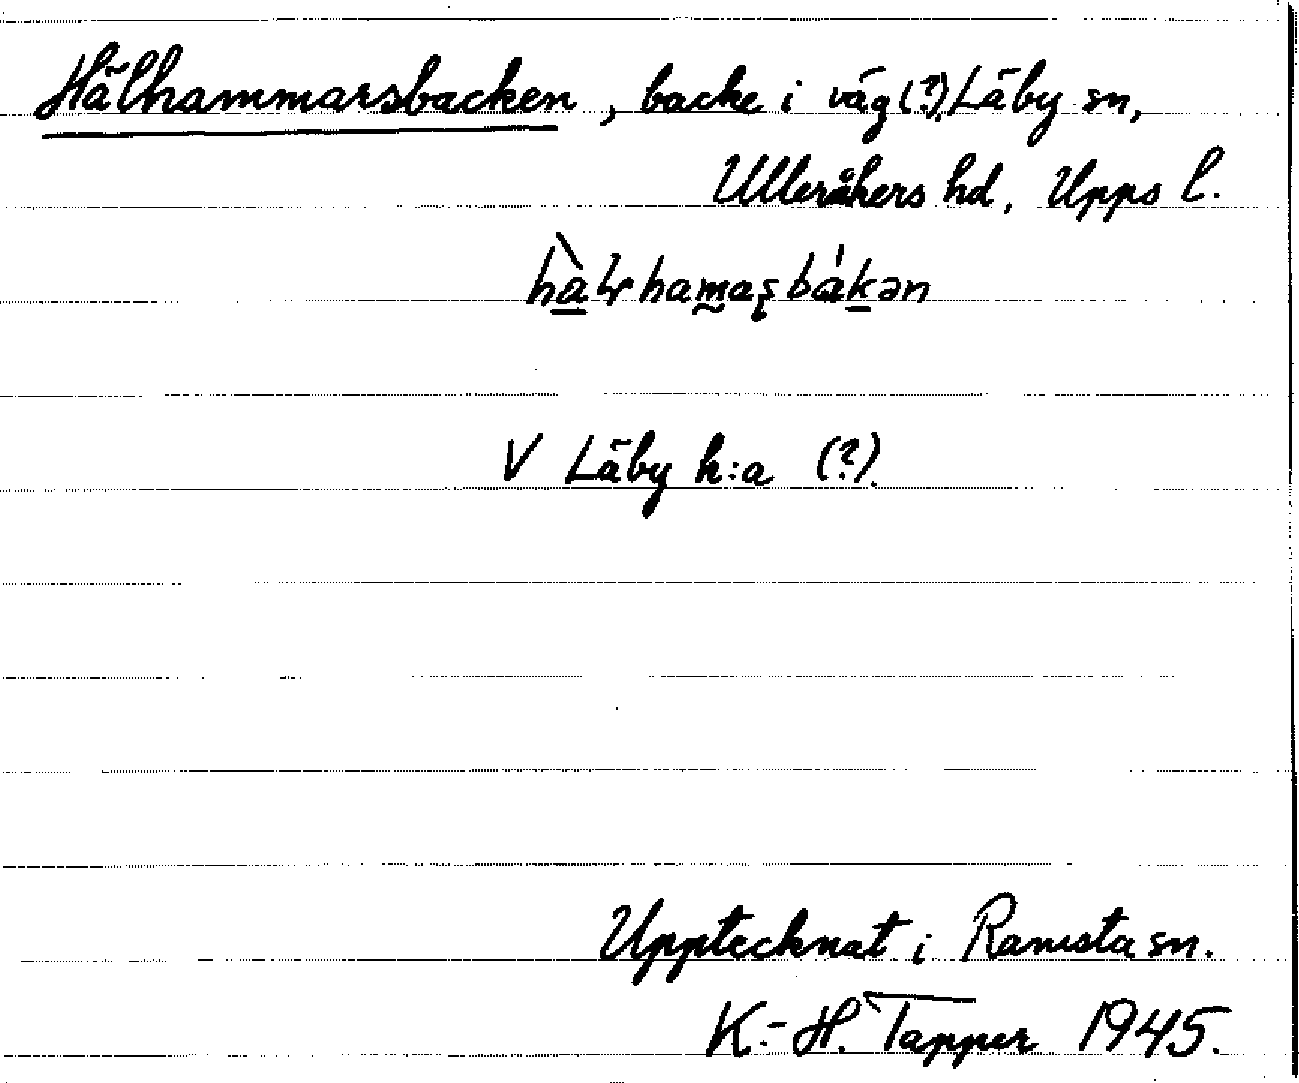 Hälhammarsbacken, backe i väg (?) Läby sn,
Ulleråkers hd, Upps l.
V Läby k:a (?).
Upptecknat i Ramsta sn.
K.-H. Tapper 1945.